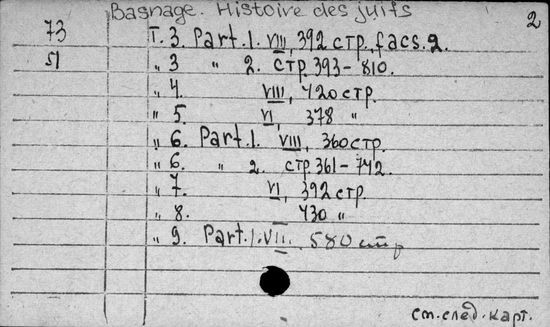 Basnage. Histoire des juifs 2
73 Т. 3. Part. 1. VIII, 392 стр., facs. 2.
51 „ 3 „ 2. стр. 393-810.
„ 4. VIII, 720 стр.
„ 5. VI, 378 „
„ 6. Part. 1. VIII, 360 стр.
„ 6. „ 2. стр. 361-742.
„ 7. VI, 392 стр.
„ 8. 430 „
„ 9. Part. 1. VII. 580 стр
см. след. карт.